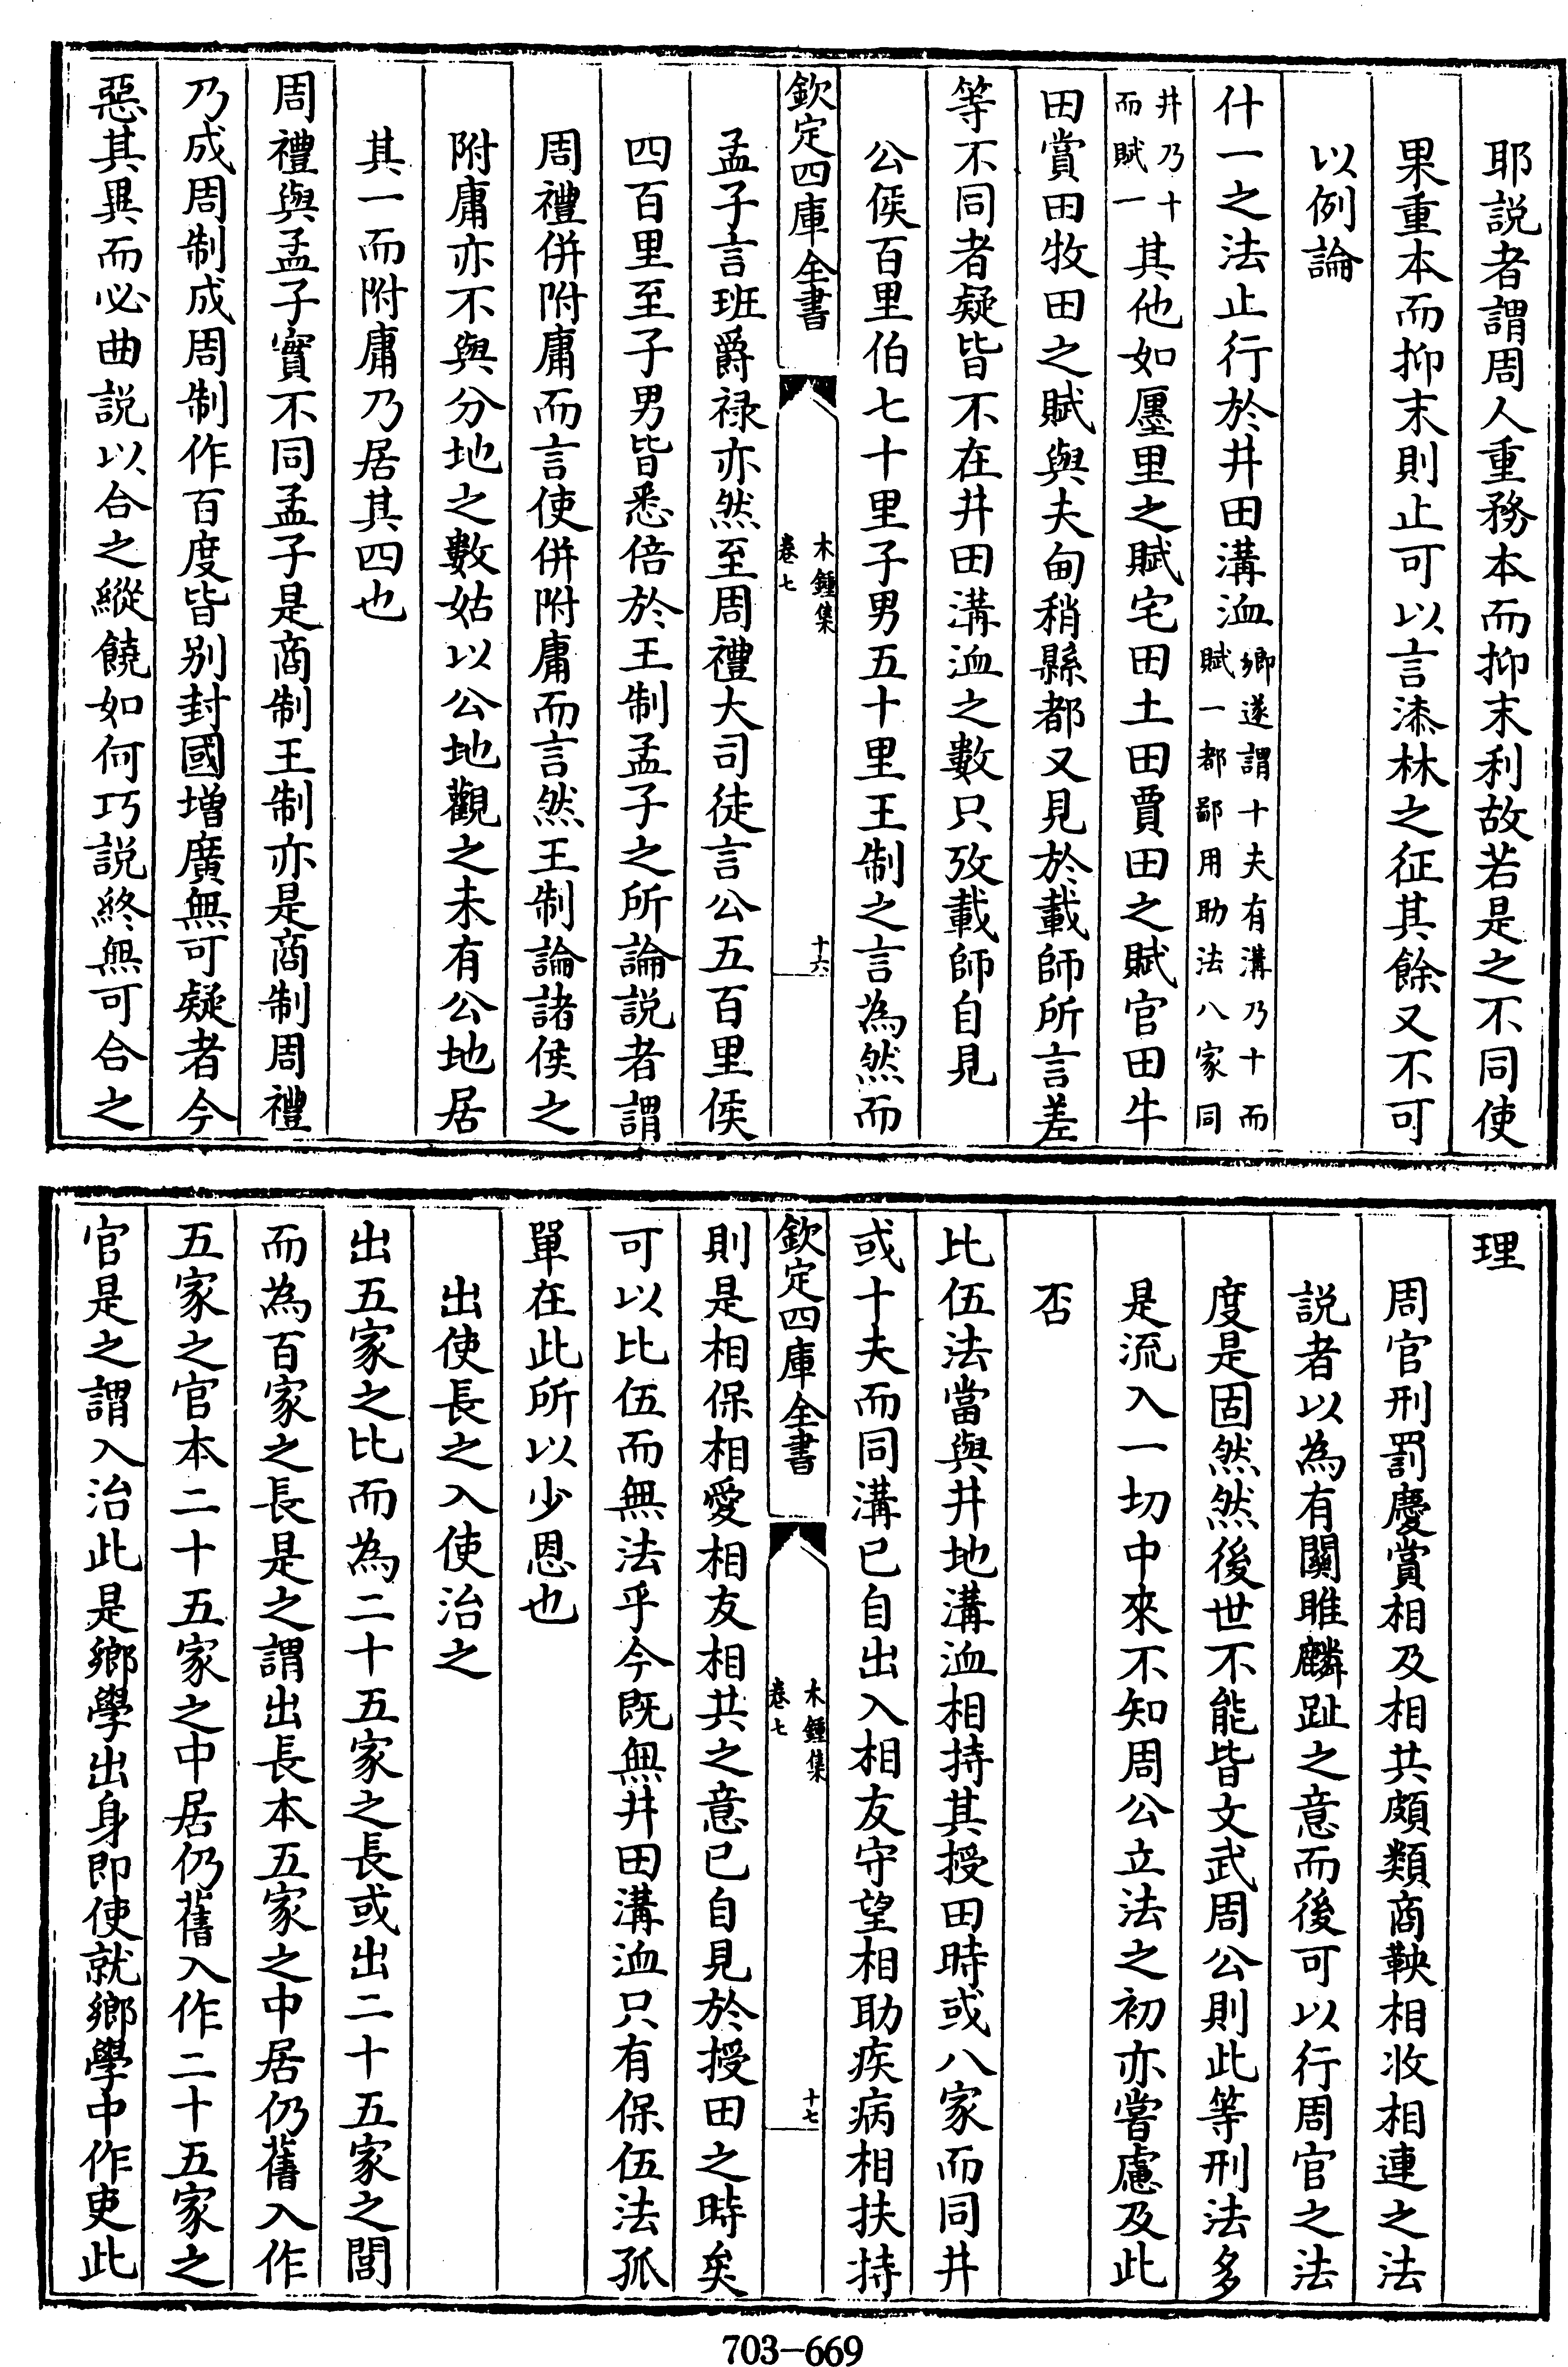 耶説者謂周人重務本而抑末利故若是之不同使
果重本而抑末則止可以言漆林之征其餘又不可
以例論
什一之法止行於井田溝洫鄉遂謂十夫有溝乃十而賦一都鄙用助法八家同
井乃十而賦一其他如廛里之賦宅田土田賈田之賦官田牛
田賞田牧田之賦與夫甸稍縣都又見於載師所言差
等不同者疑皆不在井田溝洫之數只攷載師自見
公侯百里伯七十里子男五十里王制之言為然而
欽定四庫全書
木鍾集
卷七
十六
孟子言班爵禄亦然至周禮大司徒言公五百里侯
四百里至子男皆悉倍於王制孟子之所論説者謂
周禮併附庸而言使併附庸而言然王制論諸侯之
附庸亦不與分地之數姑以公地觀之未有公地居
其一而附庸乃居其四也
周禮與孟子實不同孟子是商制王制亦是商制周禮
乃成周制成周制作百度皆别封國増廣無可疑者今
惡其異而必曲説以合之縱饒如何巧説終無可合之
理
周官刑罰慶賞相及相共頗類商鞅相收相連之法
説者以為有關雎麟趾之意而後可以行周官之法
度是固然然後世不能皆文武周公則此等刑法多
是流入一切中來不知周公立法之初亦嘗慮及此
否
比伍法當與井地溝洫相持其授田時或八家而同井
或十夫而同溝已自出入相友守望相助疾病相扶持
欽定四庫全書
木鍾集
卷七
十七
則是相保相愛相友相共之意已自見於授田之時矣
可以比伍而無法乎今既無井田溝洫只有保伍法孤
單在此所以少恩也
出使長之入使治之
出五家之比而為二十五家之長或出二十五家之閭
而為百家之長是之謂出長本五家之中居仍舊入作
五家之官本二十五家之中居仍舊入作二十五家之
官是之謂入治此是鄉學出身即使就鄉學中作吏此
703-669